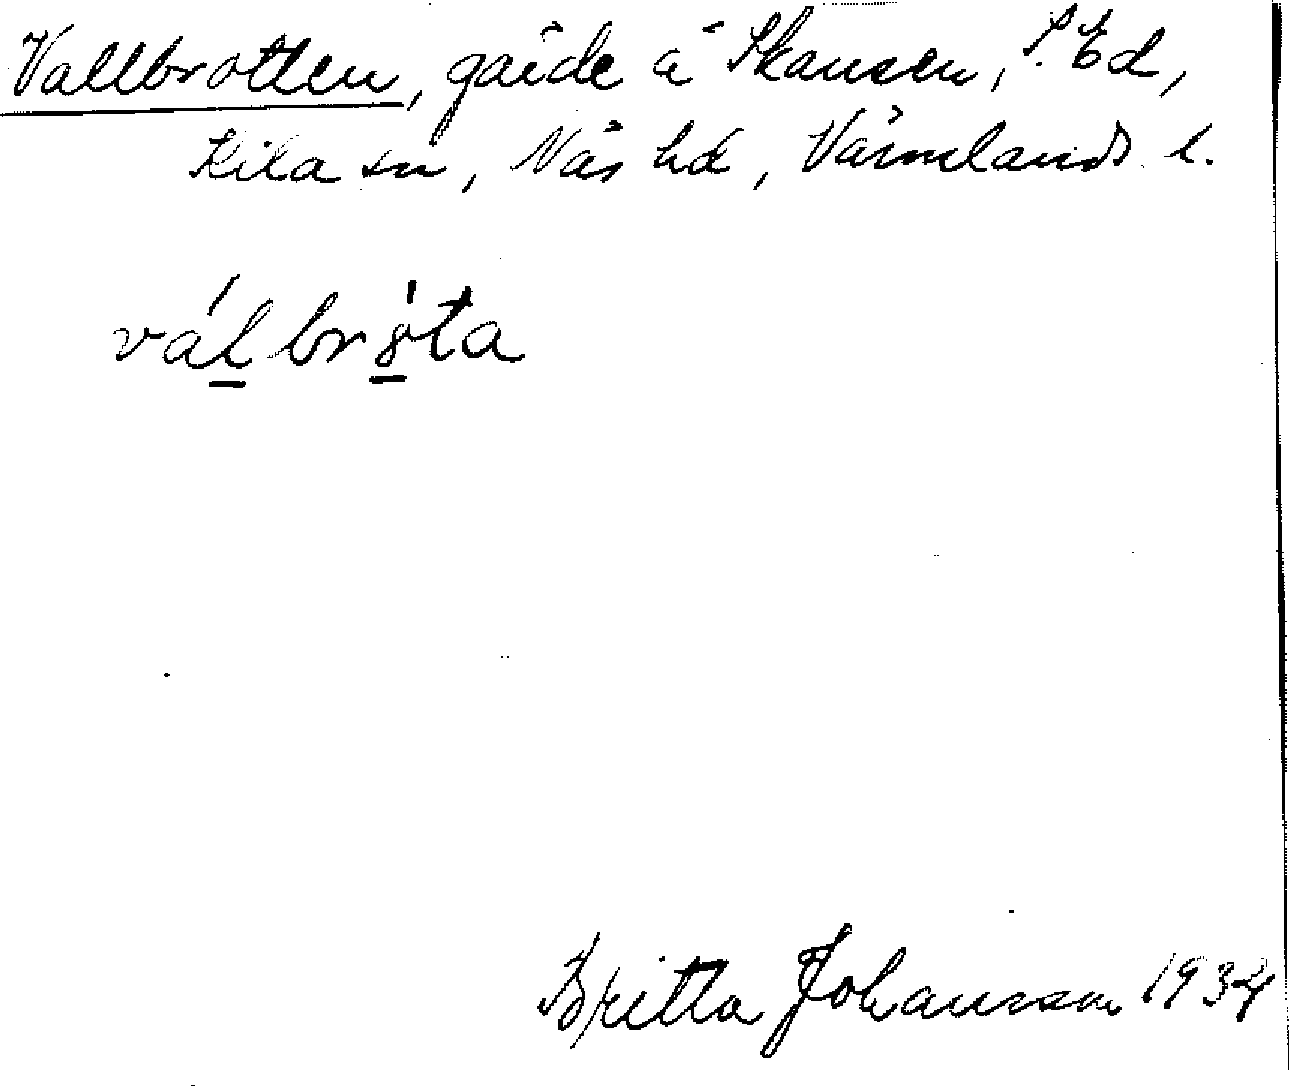 Vallbrotten, gärde å Skansen, S. Ed,
Kila sn, Näs hd, Värmlands l.
Britta Johansson 1934